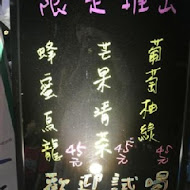 限定推出
葡萄柚綠 45元
芒果清茶 45元
蜂蜜烏龍 45元
歡迎試喝